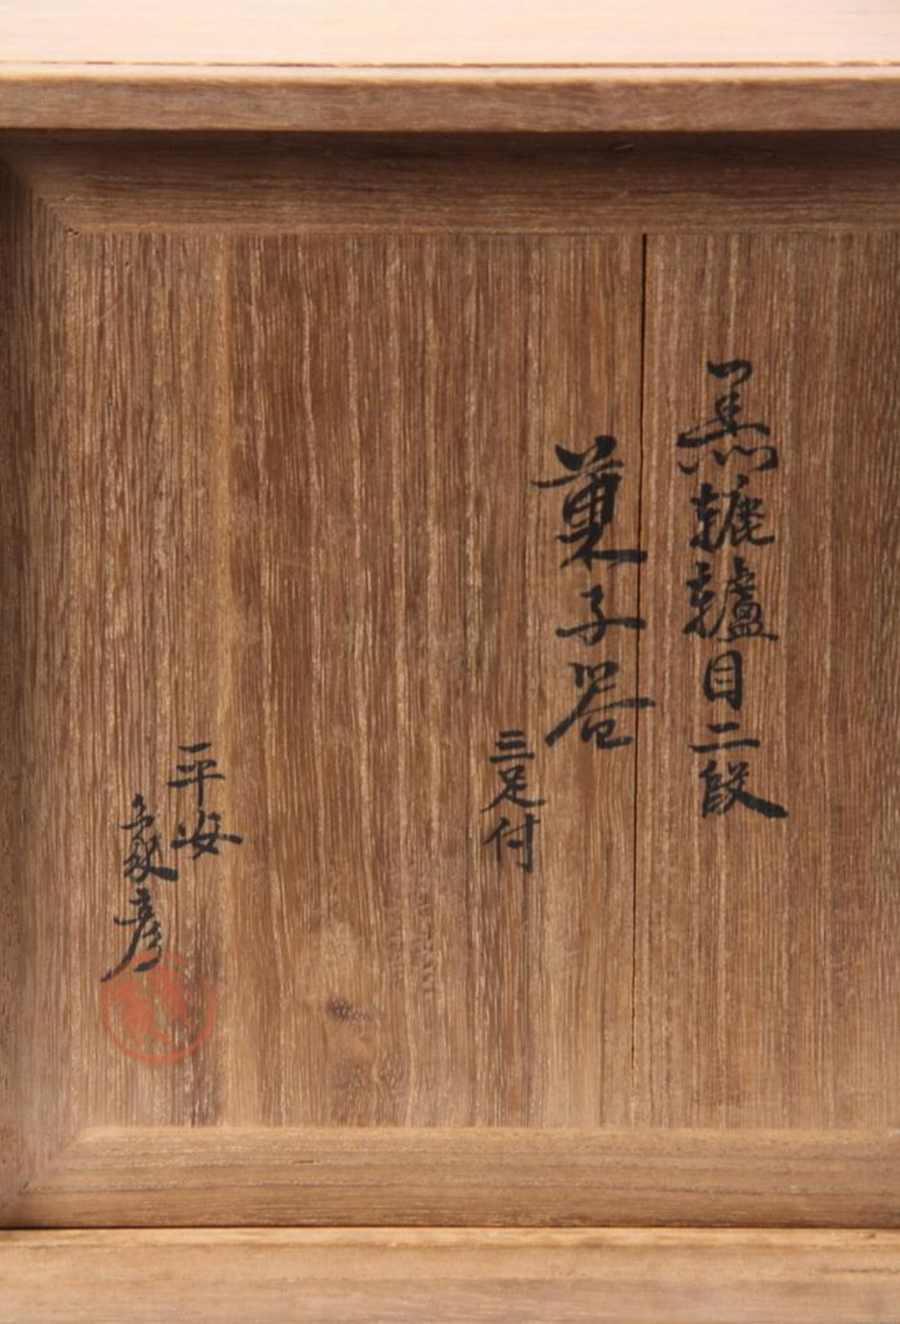 黒轆轤目二段
菓子器
三足付
平安
象彦